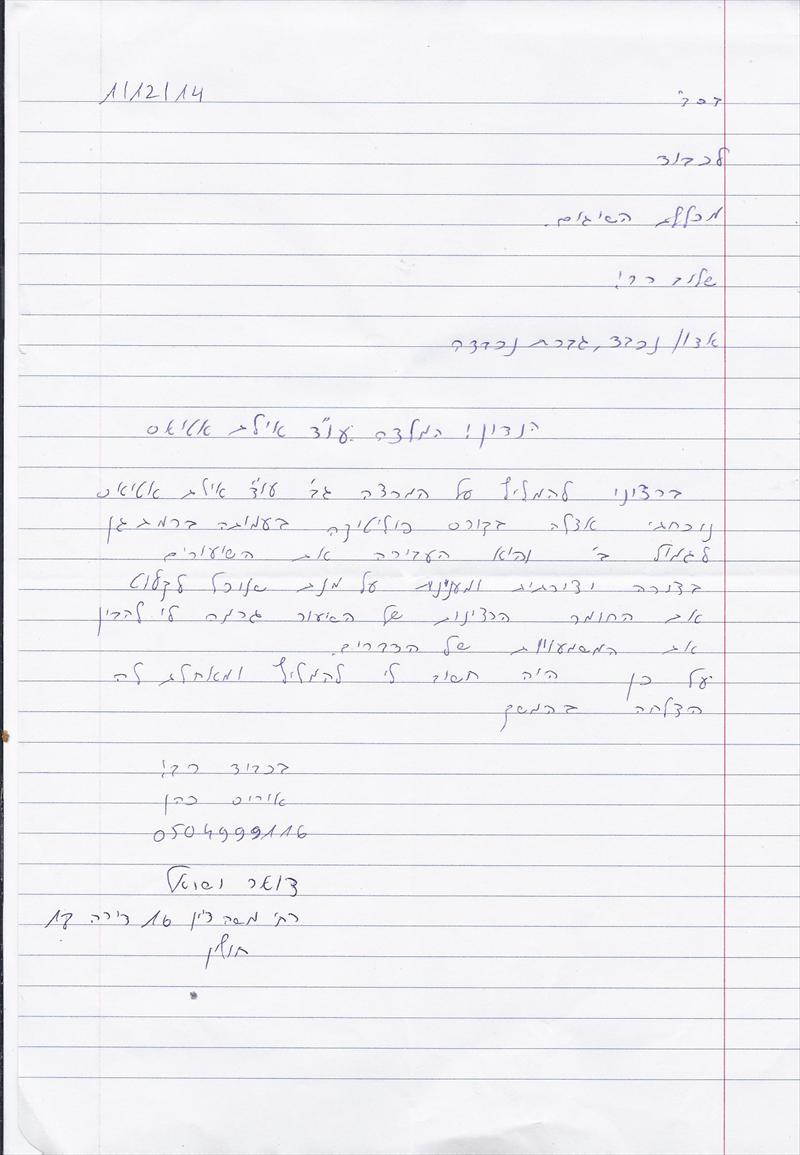 1/12/14
בס"ד
לכבוד
מכללת השיגים.
שלום רב!
אדון נכבד, גברת נכבדה
הנדון! המלצה עו"ד אילת אטיאס
ברצוני להמליץ על המרצה גב' עו"ד אילת אטיאס
נוכחתי אצלה בקורס פוליטיקה בעמותה ברמת גן
לגמול ב' והיא העבירה את השיעורים
בצורה יצירתית ומענינת על מנת שנוכל לקלוט
את החומר הרצינות של השיעור גרמה לי להבין
את המשמעויות של הדברים.
על כן היה חשוב לי להמליץ ומאחלת לה
הצלחה בהמשך
בכבוד רב!
אוריס כהן
0504999116
דואר ישראל
רח' משה דיין 16 דירה 17
חולון